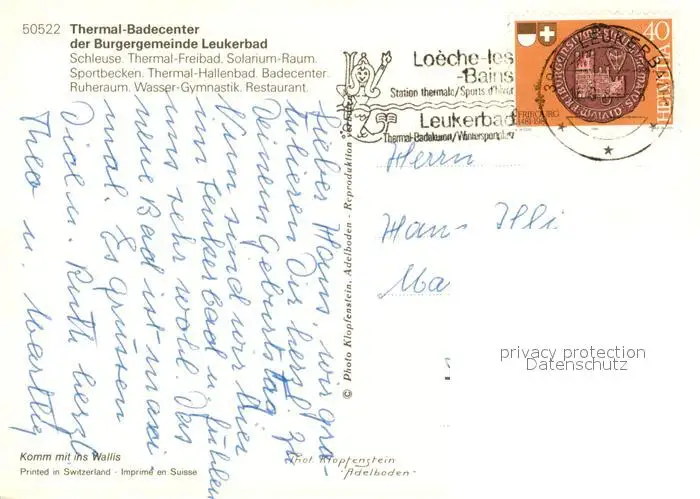 50522 Thermal-Badecenter
der Burgergemeinde Leukerbad
Schleuse. Thermal-Freibad. Solarium-Raum.
Sportbecken. Thermal-Hallenbad. Badecenter.
Ruheraum. Wasser-Gymnastik. Restaurant.
Loèche-les
-Bains
Station thermale/Sports d'hiver
Leukerbad
Thermal-Badekuren/Wintersportplatz
40
HELVETIA
FRIBOURG
1481-1981
LEUKERBAD
Lieber Hans, wir gra-
tulieren Dir herzl. zu
Deinem Geburtstag.
Nun sind wir hier
im Leukerbad u. fühlen
uns sehr wohl. Das
neue Bad ist maxi
mal. Es grüssen
Dich u. Ruth herzl.
Theo u. Marthy
© Photo Klopfenstein, Adelboden - Reproduktion verboten
Herrn
Hans Illi
Ma
privacy protection
Datenschutz
Komm mit ins Wallis
Printed in Switzerland - Imprimé en Suisse
Phot. Klopfenstein
Adelboden